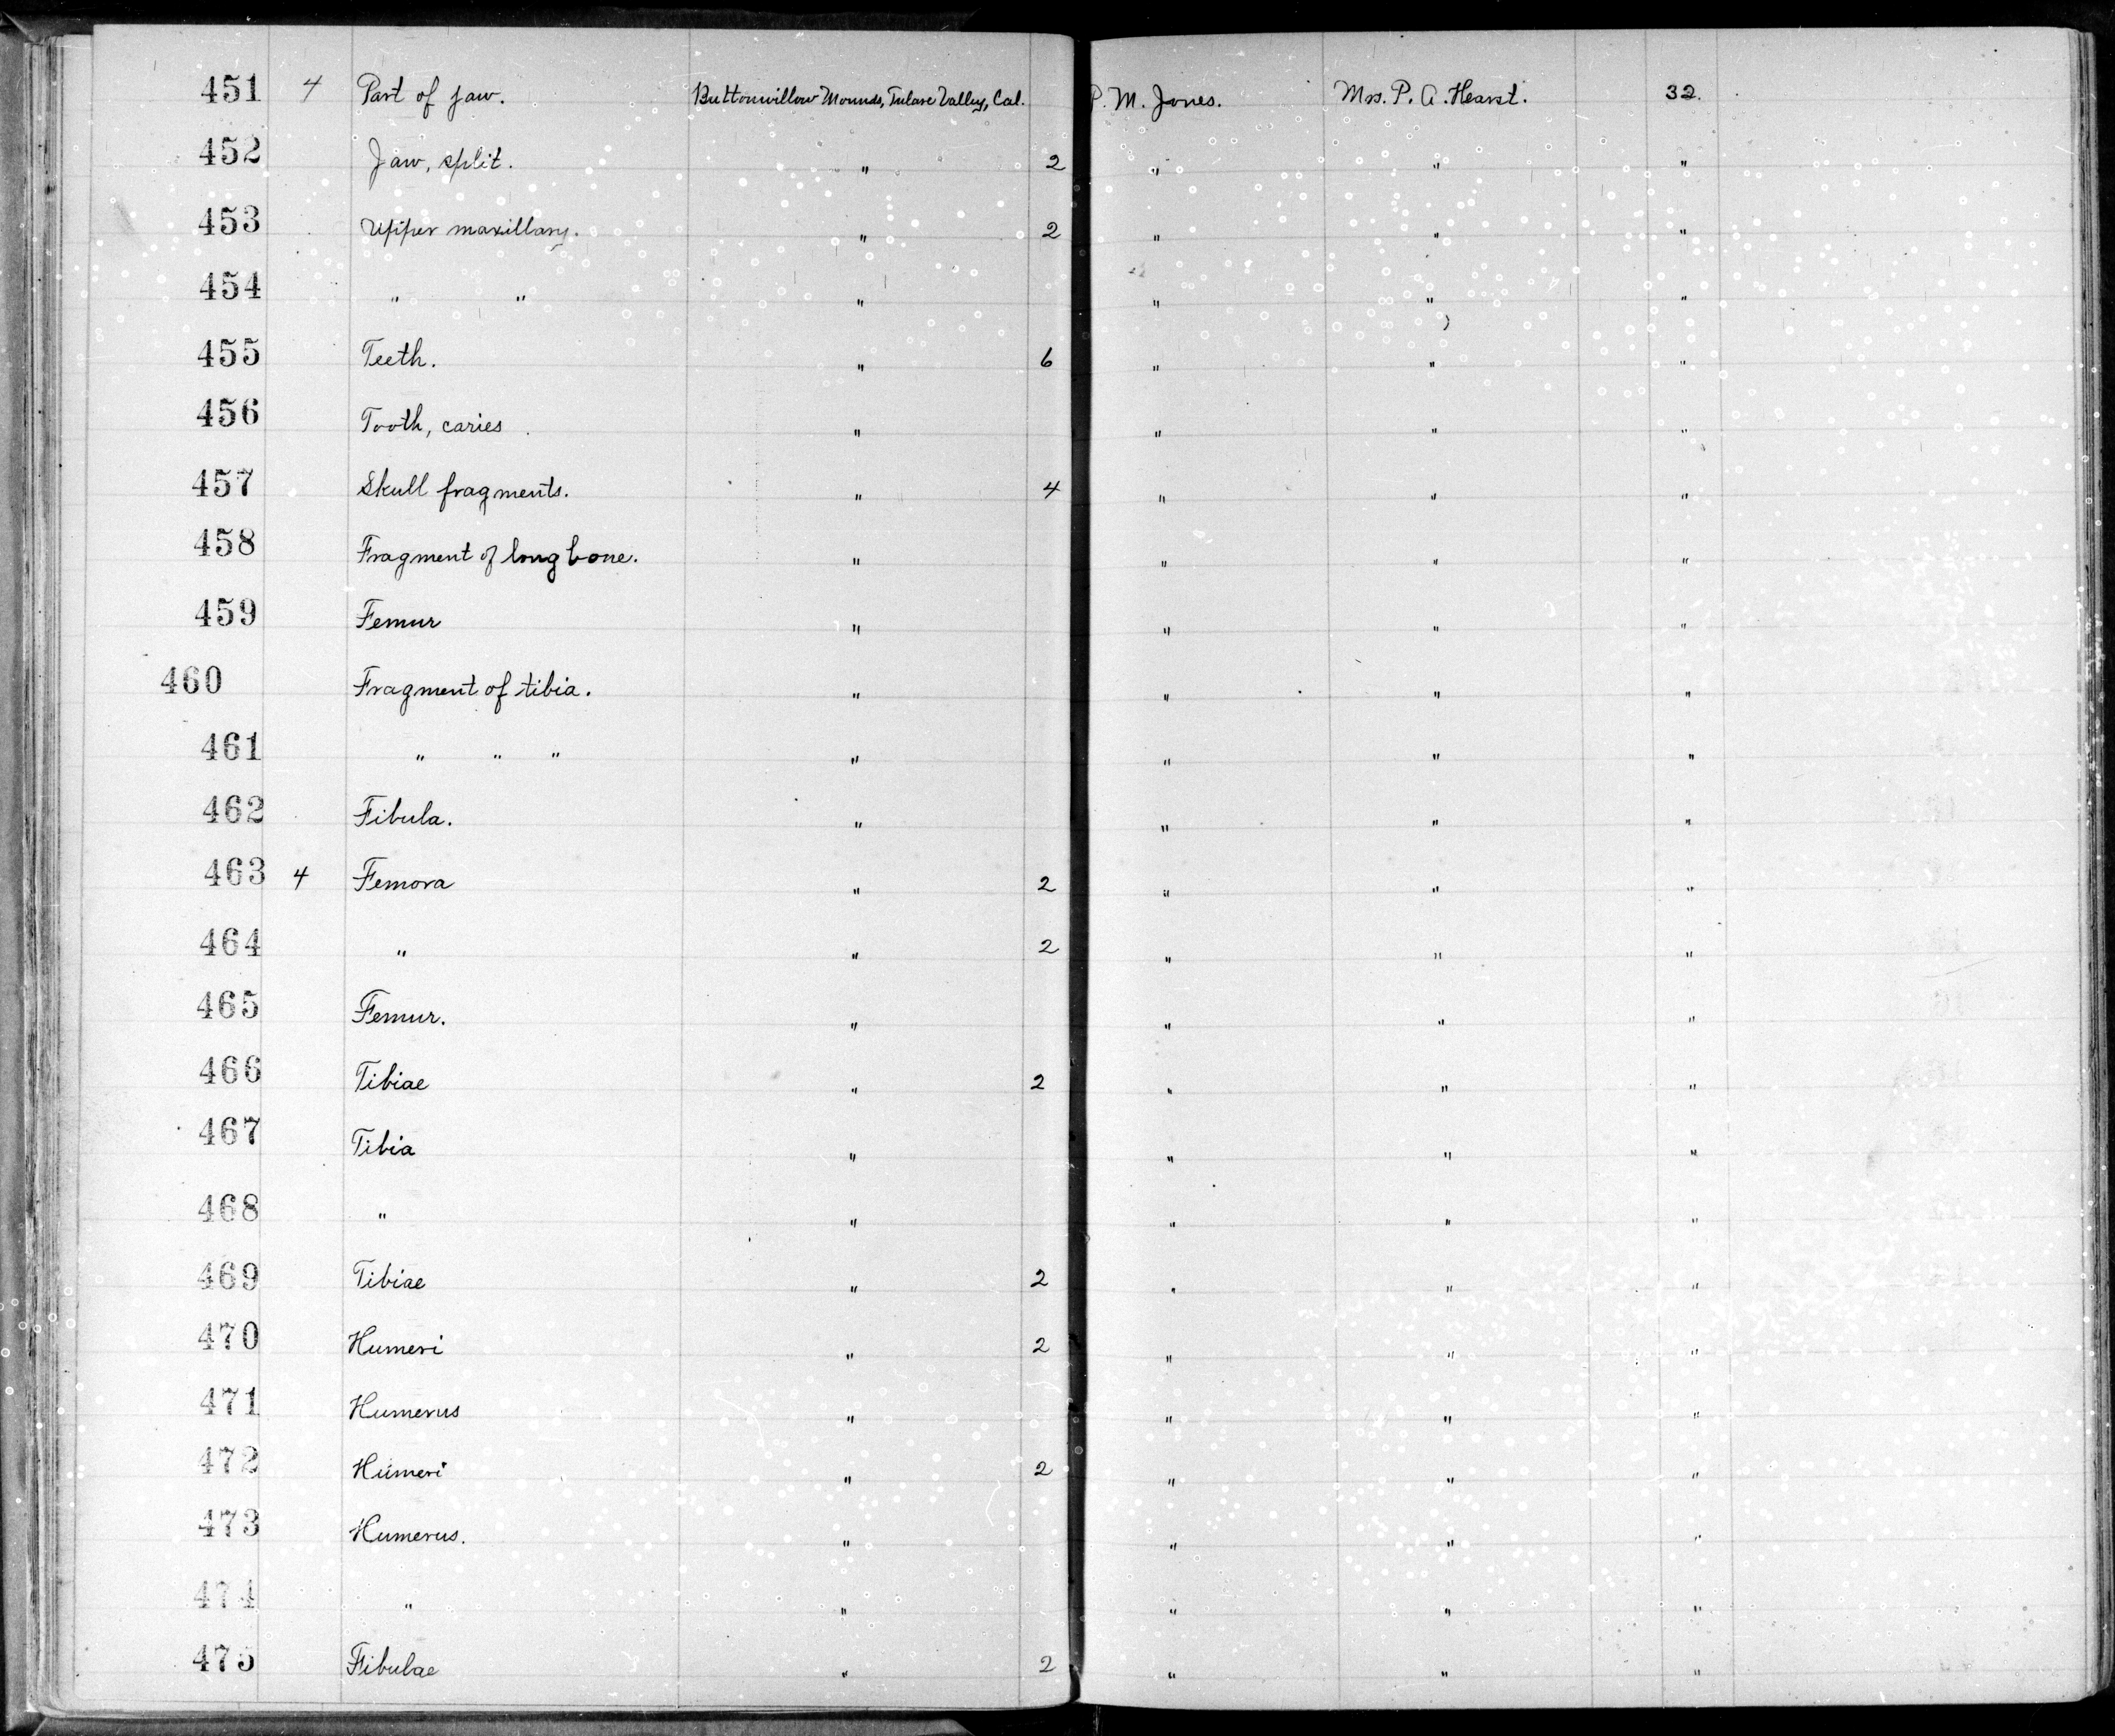 451 4 Part of jaw. Buttonwillow Mounds, Tulare Valley, Cal. P. M. Jones. Mrs. P. A. Hearst. 32.
452 Jaw, split. " 2 " " "
453 Upper maxillary. " 2 " " "
454 " " " " " "
455 Teeth. " 6 " " "
456 Tooth, caries. " " " "
457 Skull fragments. " 4 " " "
458 Fragment of long bone. " " " "
459 Femur " " " "
460 Fragment of tibia. " " " "
461 " " " " " " "
462 Fibula. " " " "
463 4 Femora " 2 " " "
464 " " 2 " " "
465 Femur. " " " "
466 Tibiae " 2 " " "
467 Tibia " " " "
468 " " " " "
469 Tibiae " 2 " " "
470 Humeri " 2 " " "
471 Humerus " " " "
472 Humeri " 2 " " "
473 Humerus. " " " "
474 " " " " "
475 Fibulae " 2 " " "